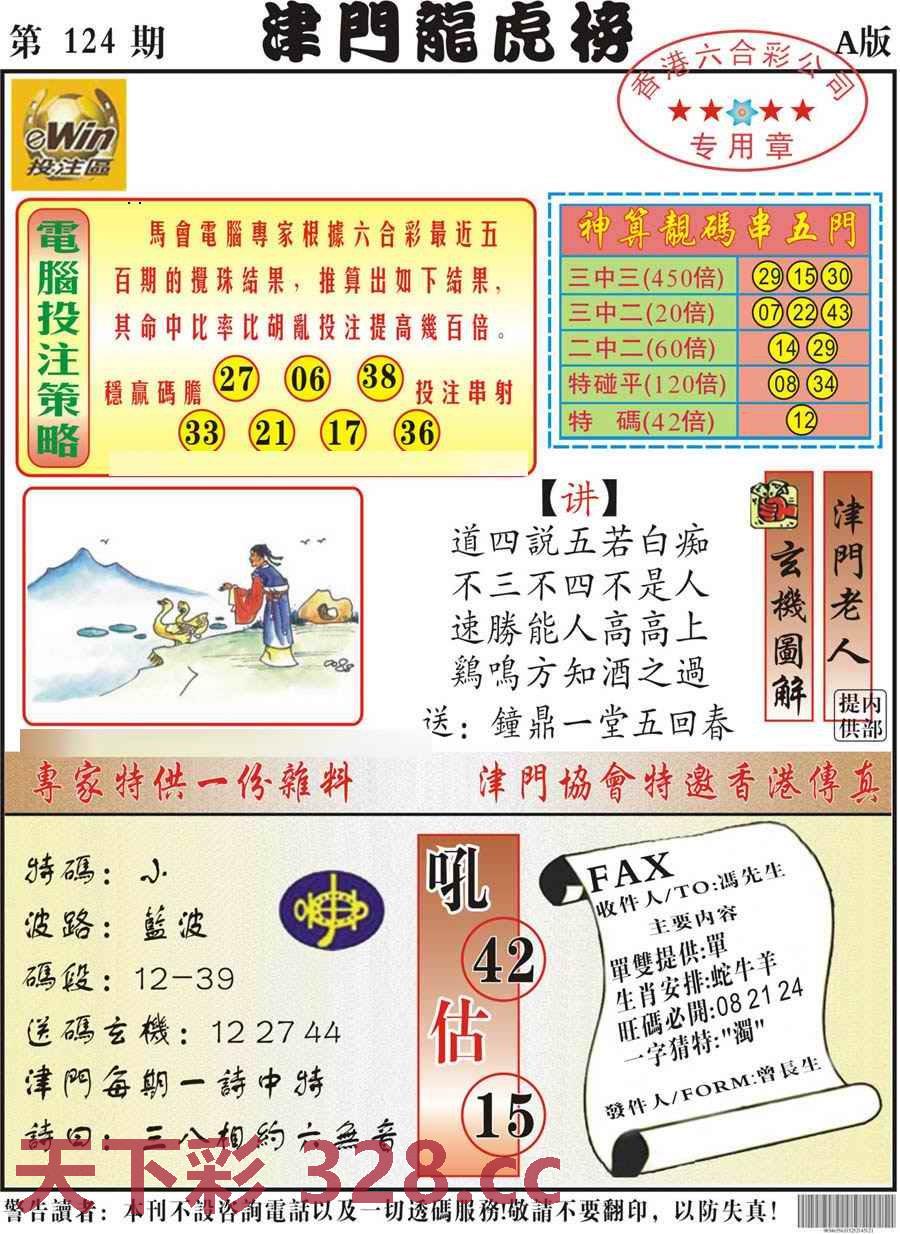 第 124 期
津門龍虎榜
A版
香港六合彩公司
专用章
eWin
投注區
電腦投注策略
馬會電腦專家根據六合彩最近五
百期的攪珠結果，推算出如下結果，
其命中比率比胡亂投注提高幾百倍。
穩贏碼膽 27 06 38 投注串射
33 21 17 36
神算靚碼串五門
三中三(450倍) 29 15 30
三中二(20倍) 07 22 43
二中二(60倍) 14 29
特碰平(120倍) 08 34
特 碼(42倍) 12
【讲】
道四説五若白痴
不三不四不是人
速勝能人高高上
鷄鳴方知酒之過
送：鐘鼎一堂五回春
玄機圖解
津門老人
内部提供
專家特供一份雜料
津門協會特邀香港傳真
特碼：小
波路：藍波
碼段：12-39
送碼玄機：12 27 44
津門每期一詩中特
詩曰：三八相約六無音
吼
42
估
15
FAX
收件人/TO:馮先生
主要内容
單雙提供:單
生肖安排:蛇牛羊
旺碼必開:08 21 24
一字猜特:"濁"
發件人/FORM:曾長生
天下彩 328.cc
警告讀者：本刊不設咨詢電話以及一切透碼服務!敬請不要翻印，以防失真！